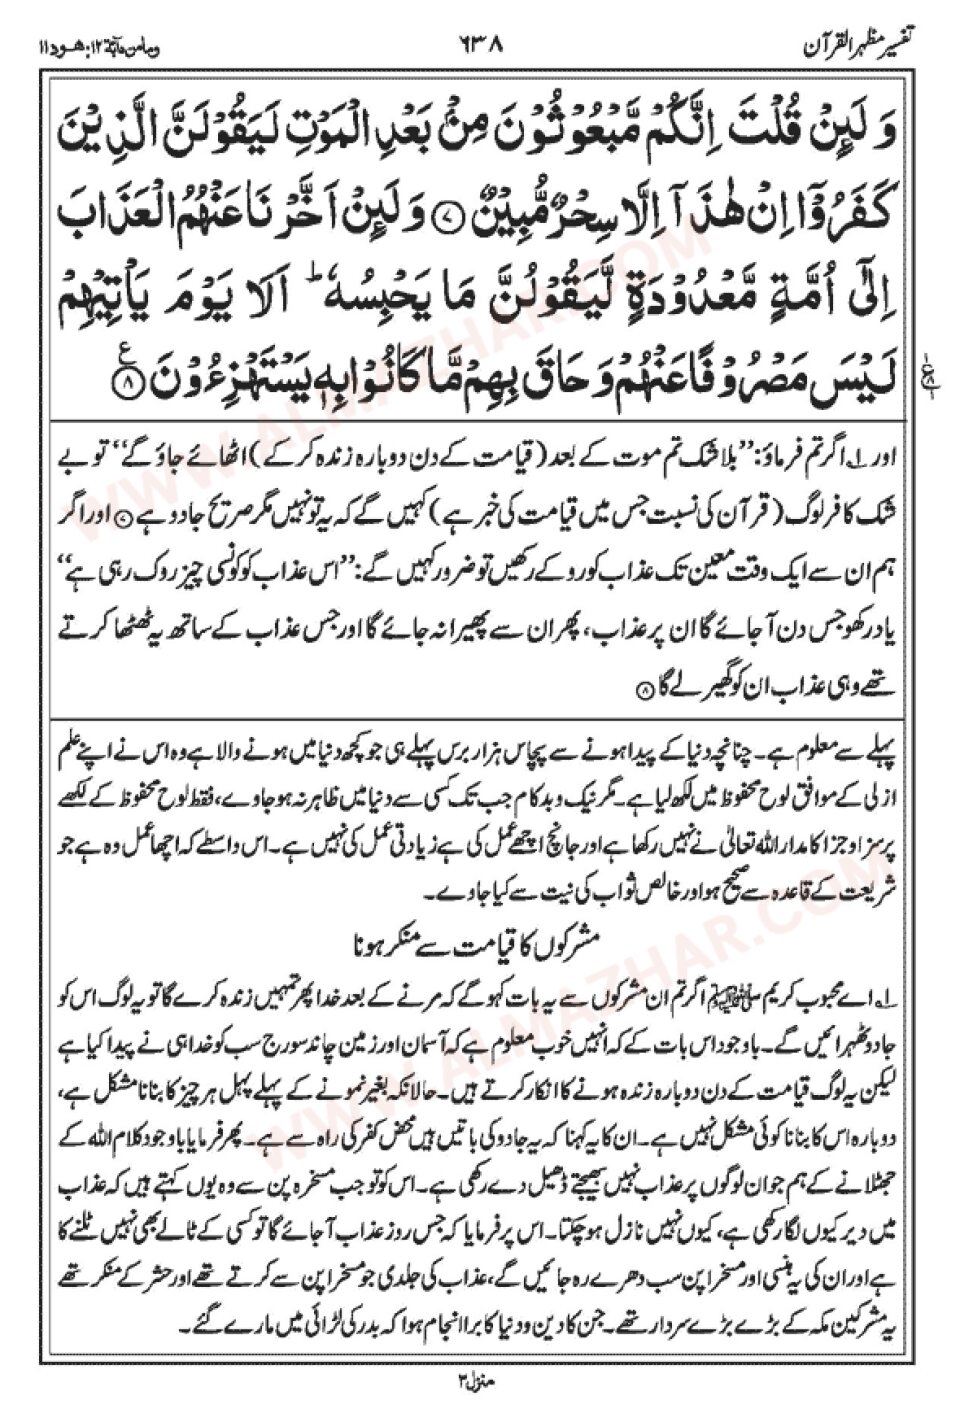 تفسیر مظہر القرآن
۶۳۸
ومامن دآبۃ ۱۲: ھود ۱۱
وَ لَىِٕنْ قُلْتَ اِنَّكُمْ مَّبْعُوْثُوْنَ مِنْۢ بَعْدِ الْمَوْتِ لَیَقُوْلَنَّ الَّذِیْنَ
كَفَرُوْۤا اِنْ هٰذَاۤ اِلَّا سِحْرٌ مُّبِیْنٌ ۷ وَ لَىِٕنْ اَخَّرْنَا عَنْهُمُ الْعَذَابَ
اِلٰۤى اُمَّةٍ مَّعْدُوْدَةٍ لَّیَقُوْلُنَّ مَا یَحْبِسُهٗ ؕ اَلَا یَوْمَ یَاْتِیْهِمْ
لَیْسَ مَصْرُوْفًا عَنْهُمْ وَ حَاقَ بِهِمْ مَّا كَانُوْا بِهٖ یَسْتَهْزِءُوْنَ ۸ ع
اور ۱؎ اگر تم فرماؤ: ’’بلاشک تم موت کے بعد (قیامت کے دن دوبارہ زندہ کر کے) اٹھائے جاؤ گے‘‘ تو بے
شک کافر لوگ (قرآن کی نسبت جس میں قیامت کی خبر ہے) کہیں گے کہ یہ تو نہیں مگر صریح جادو ہے ۷ اور اگر
ہم ان سے ایک وقت معین تک عذاب کو روکے رکھیں تو ضرور کہیں گے: ’’اس عذاب کو کونسی چیز روک رہی ہے‘‘
یاد رکھو جس دن آ جائے گا ان پر عذاب، پھر ان سے پھیرا نہ جائے گا اور جس عذاب کے ساتھ یہ ٹھٹھا کرتے
تھے وہی عذاب ان کو گھیر لے گا ۸
پہلے سے معلوم ہے۔ چنانچہ دنیا کے پیدا ہونے سے پچاس ہزار برس پہلے ہی جو کچھ دنیا میں ہونے والا ہے وہ اس نے اپنے علم
ازلی کے موافق لوح محفوظ میں لکھ لیا ہے۔ مگر نیک و بد کام جب تک کسی سے دنیا میں ظاہر نہ ہو جاوے، فقط لوح محفوظ کے لکھے
پر سزا و جزا کا مدار اللہ تعالیٰ نے نہیں رکھا ہے اور جانچ اچھے عمل کی ہے زیادتی عمل کی نہیں ہے۔ اس واسطے کہ اچھا عمل وہ ہے جو
شریعت کے قاعدہ سے صحیح ہو اور خالص ثواب کی نیت سے کیا جاوے۔
مشرکوں کا قیامت سے منکر ہونا
۱؎ اے محبوب کریم ﷺ اگر تم ان مشرکوں سے یہ بات کہو گے کہ مرنے کے بعد خدا پھر تمہیں زندہ کرے گا تو یہ لوگ اس کو
جادو ٹھہرائیں گے۔ باوجود اس بات کے کہ انہیں خوب معلوم ہے کہ آسمان اور زمین چاند سورج سب کو خدا ہی نے پیدا کیا ہے
لیکن یہ لوگ قیامت کے دن دوبارہ زندہ ہونے کا انکار کرتے ہیں۔ حالانکہ بغیر نمونے کے پہلے پہل ہر چیز کا بنانا مشکل ہے،
دوبارہ اس کا بنانا کوئی مشکل نہیں ہے۔ ان کا یہ کہنا کہ یہ جادو کی باتیں ہیں محض کفر کی راہ سے ہے۔ پھر فرمایا باوجود کلام اللہ کے
جھٹلانے کے ہم جو ان لوگوں پر عذاب نہیں بھیجتے ڈھیل دے رکھی ہے۔ اس کو تو جب مسخرہ پن سے وہ یوں کہتے ہیں کہ عذاب
میں دیر کیوں لگا رکھی ہے، کیوں نہیں نازل ہو چکتا۔ اس پر فرمایا کہ جس روز عذاب آ جائے گا تو کسی کے ٹالے بھی نہیں ٹلنے کا
ہے اور ان کی یہ ہنسی اور مسخرا پن سب دھرے رہ جائیں گے، عذاب کی جلدی جو مسخرا پن سے کرتے تھے اور حشر کے منکر تھے
یہ مشرکین مکہ کے بڑے بڑے سردار تھے۔ جن کا دین و دنیا کا برا انجام ہوا کہ بدر کی لڑائی میں مارے گئے۔
منزل ۳
WWW.ALMAZHAR.COM
WWW.ALMAZHAR.COM